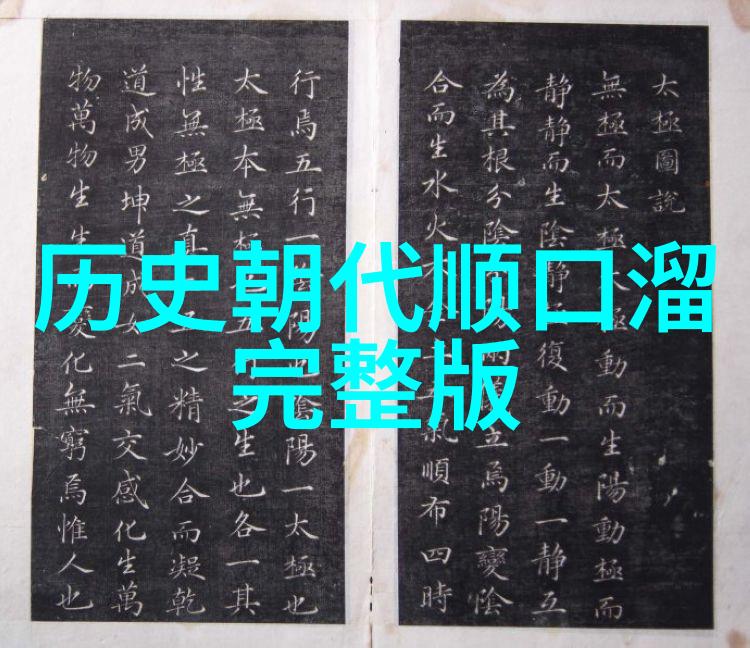 历史朝代顺口溜
完整版
太極圖說
無極而太極極動而生陽動極而
静静而生陰静復動一動一静互
為其根分陰陽立焉陽變陰
合而生水火氣順布四時
行焉五行一陽也陰陽一太極也
太極本無極五之生也各一其
性無極之真五之精妙合而凝乾
道成男坤道成女二氣交感化生萬
物萬物生生變化無窮焉惟人也